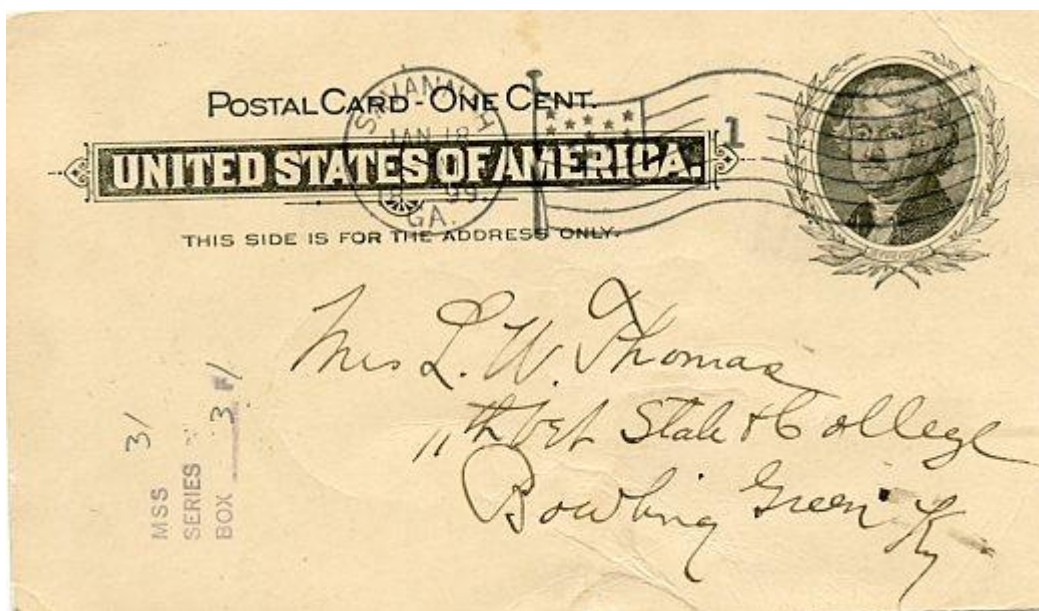 POSTAL CARD - ONE CENT.
UNITED STATES OF AMERICA.
THIS SIDE IS FOR THE ADDRESS ONLY.
SAVANNAH
JAN 18
99.
GA.
1
Mrs L. W. Thomas
11th bet State & College
Bowling Green Ky
MSS 31
SERIES
BOX 3 F1